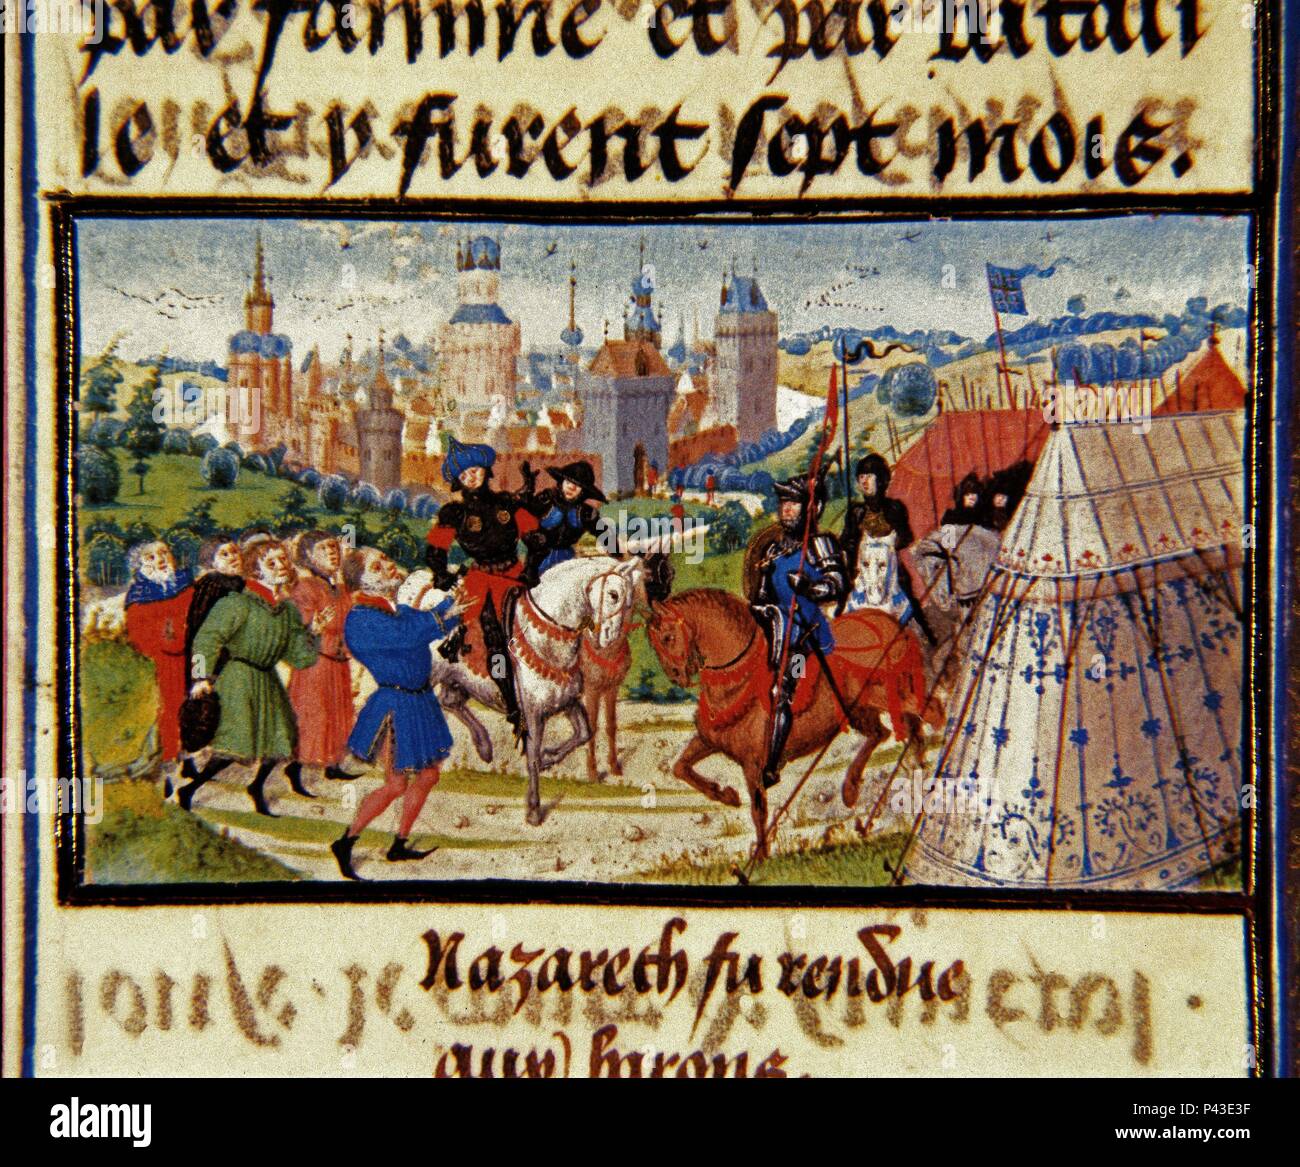 par famine et par batail
le et y furent sept mois.
Nazareth fu rendue
aux barons.
alamy
Image ID: P43E3F
www.alamy.com